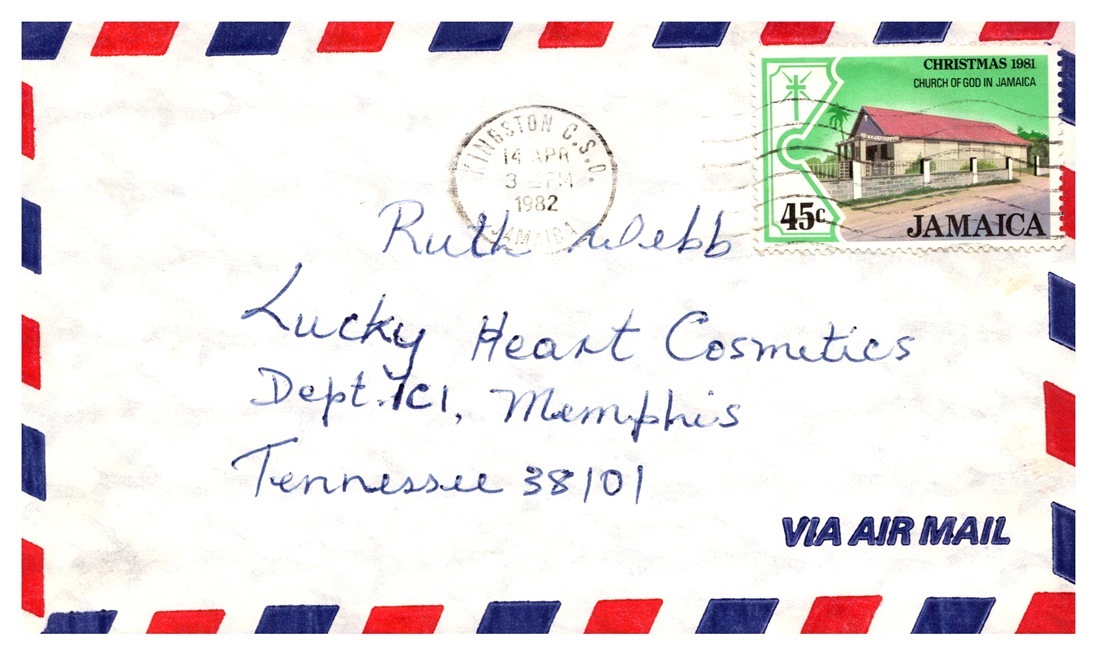 CHRISTMAS 1981
CHURCH OF GOD IN JAMAICA
45c
JAMAICA
KINGSTON C.S.O.
14 APR
3 PM
1982
JAMAICA
Ruth Webb
Lucky Heart Cosmetics
Dept. 1C1, Memphis
Tennessee 38101
VIA AIR MAIL